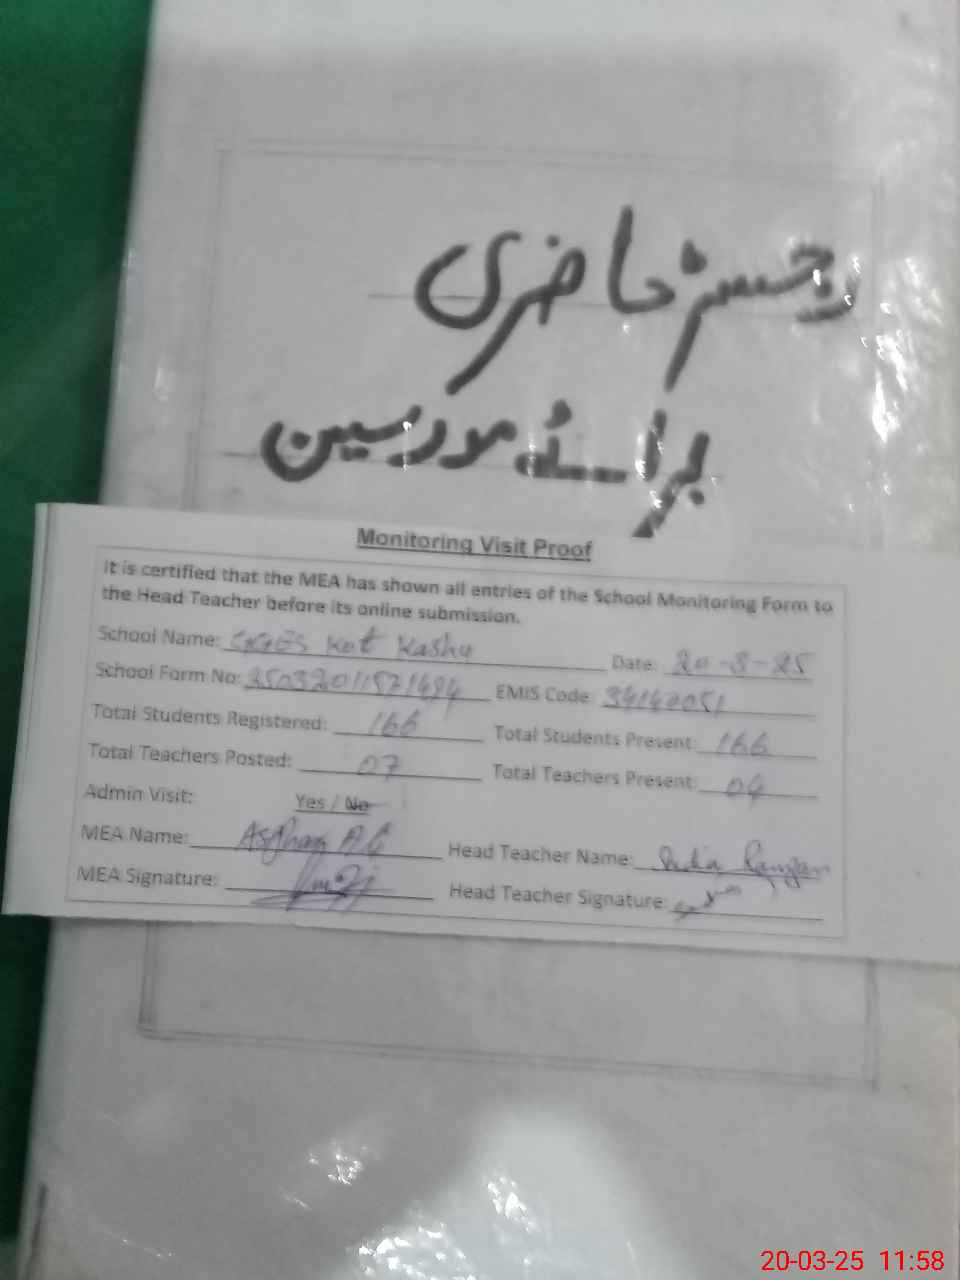 رجسٹر حاضری
برائے مدرسین
Monitoring Visit Proof
It is certified that the MEA has shown all entries of the School Monitoring Form to
the Head Teacher before its online submission.
School Name: GGES Kot Kashu Date: 20-3-25
School Form No: EMIS Code: 34140051
Total Students Registered: 166 Total Students Present: 166
Total Teachers Posted: 07 Total Teachers Present: 04
Admin Visit: Yes / No
MEA Name: Asghar Ali Head Teacher Name:
MEA Signature: Head Teacher Signature:
20-03-25 11:58